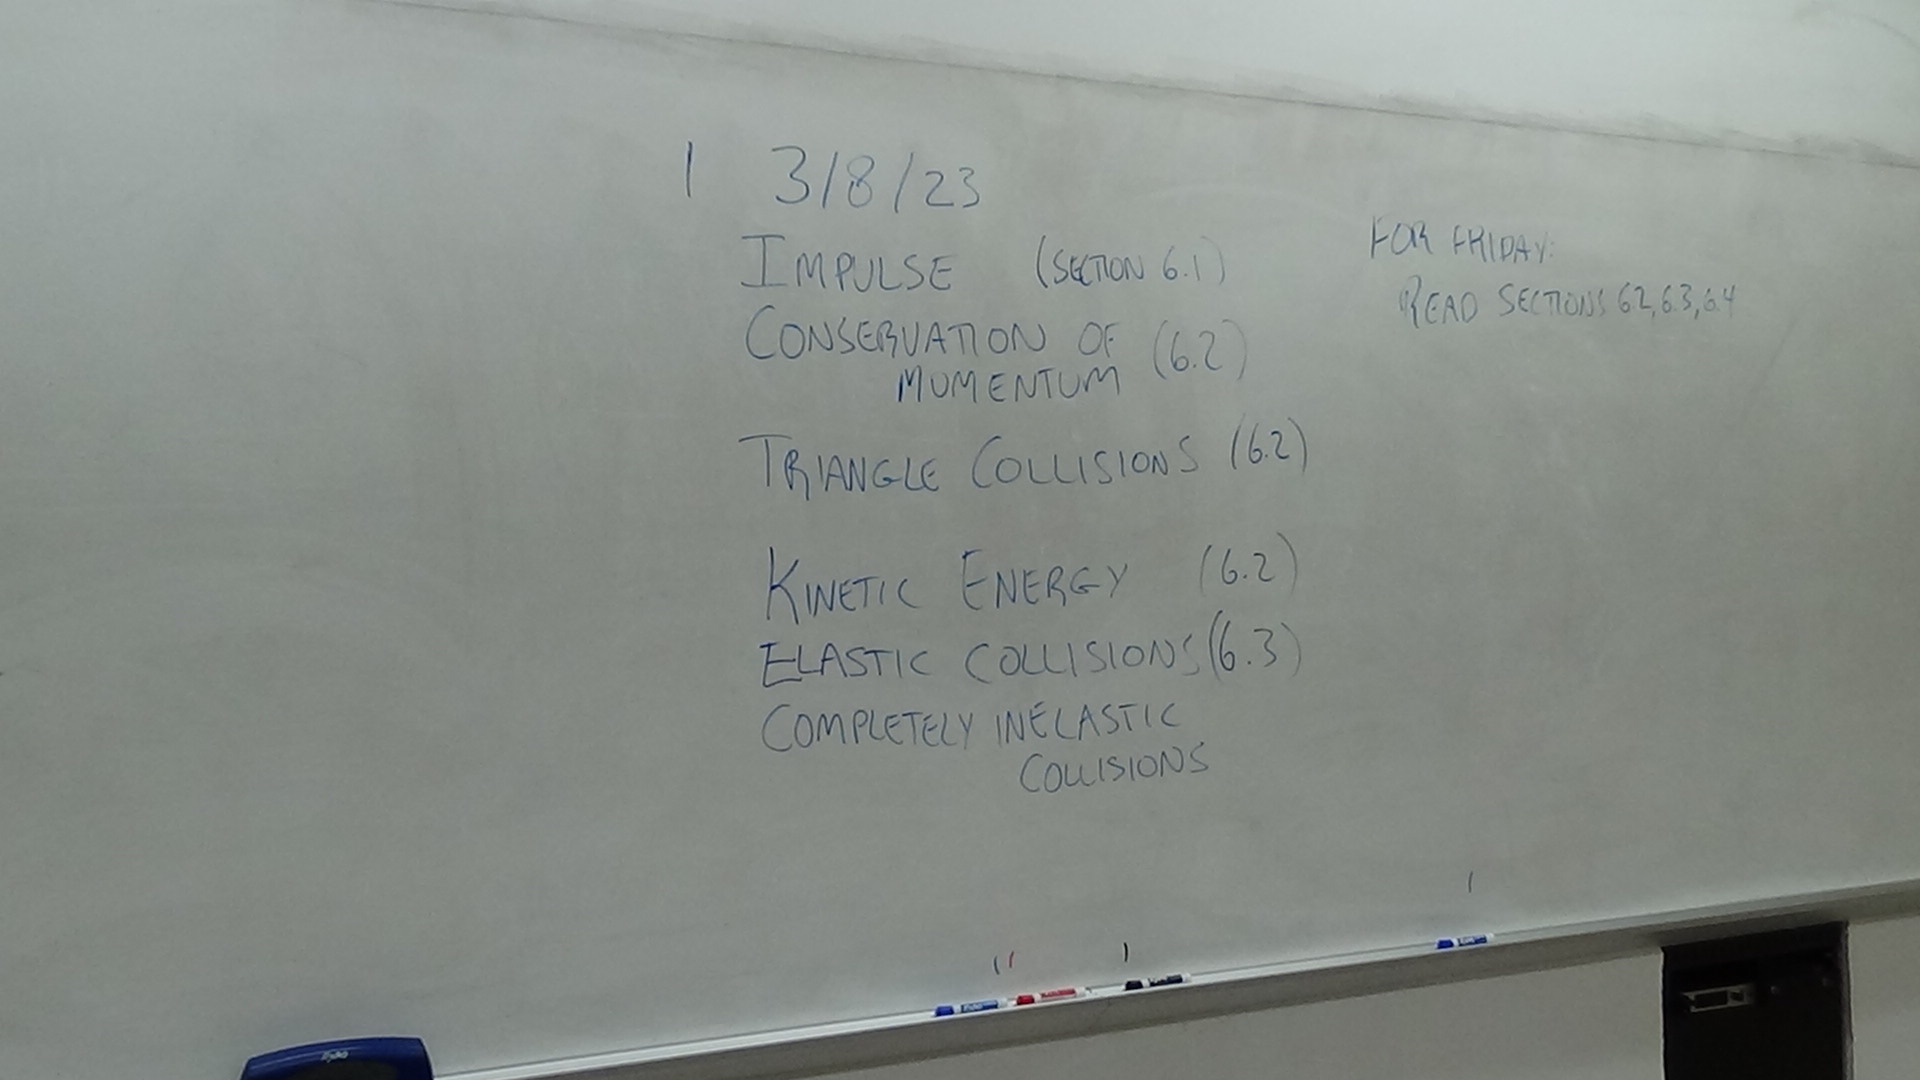 1 3/8/23
IMPULSE (SECTION 6.1)
CONSERVATION OF (6.2)
MOMENTUM
TRIANGLE COLLISIONS (6.2)
KINETIC ENERGY (6.2)
ELASTIC COLLISIONS (6.3)
COMPLETELY INELASTIC
COLLISIONS
FOR FRIDAY:
READ SECTIONS 6.2, 6.3, 6.4